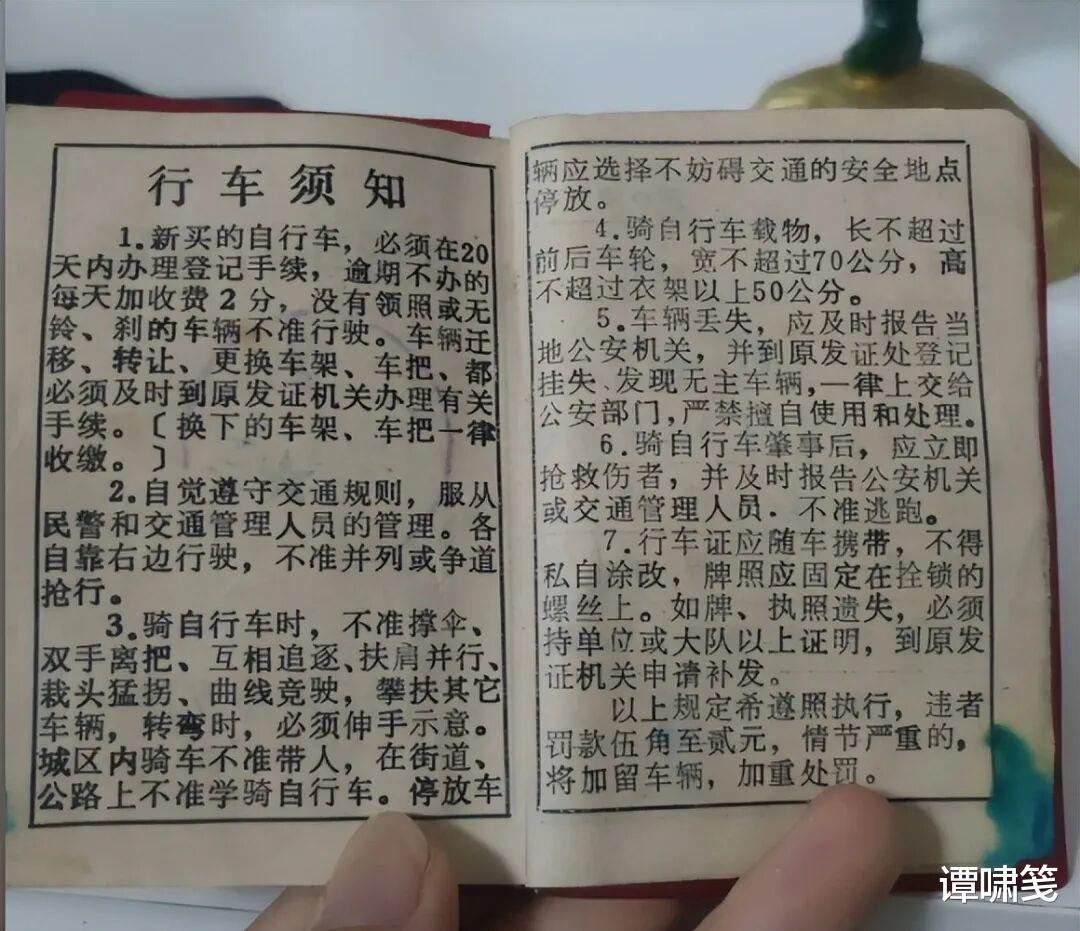 行车须知
1.新买的自行车，必须在20
天内办理登记手续，逾期不办的
每天加收费2分，没有领照或无
铃、刹的车辆不准行驶。车辆迁
移、转让、更换车架、车把、都
必须及时到原发证机关办理有关
手续。〔换下的车架、车把一律
收缴。〕
2.自觉遵守交通规则，服从
民警和交通管理人员的管理。各
自靠右边行驶，不准并列或争道
抢行。
3.骑自行车时，不准撑伞、
双手离把、互相追逐、扶肩并行、
栽头猛拐、曲线竞驶，攀扶其它
车辆，转弯时，必须伸手示意。
城区内骑车不准带人，在街道、
公路上不准学骑自行车。停放车
辆应选择不妨碍交通的安全地点
停放。
4.骑自行车载物，长不超过
前后车轮，宽不超过70公分，高
不超过衣架以上50公分。
5.车辆丢失，应及时报告当
地公安机关，并到原发证处登记
挂失、发现无主车辆，一律上交给
公安部门，严禁擅自使用和处理。
6.骑自行车肇事后，应立即
抢救伤者，并及时报告公安机关
或交通管理人员．不准逃跑。
7.行车证应随车携带，不得
私自涂改，牌照应固定在拴锁的
螺丝上。如牌、执照遗失，必须
持单位或大队以上证明，到原发
证机关申请补发。
以上规定希遵照执行，违者
罚款伍角至贰元，情节严重的，
将加留车辆，加重处罚。
谭啸笺